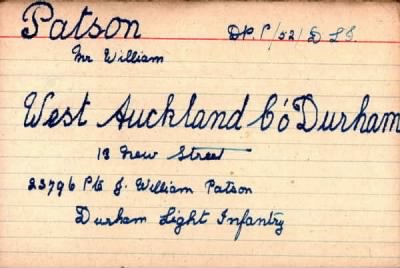 Patson DP. P/52/D L I.
Mr William
West Auckland Co Durham
13 New Street
23796 Pte J. William Patson
Durham Light Infantry